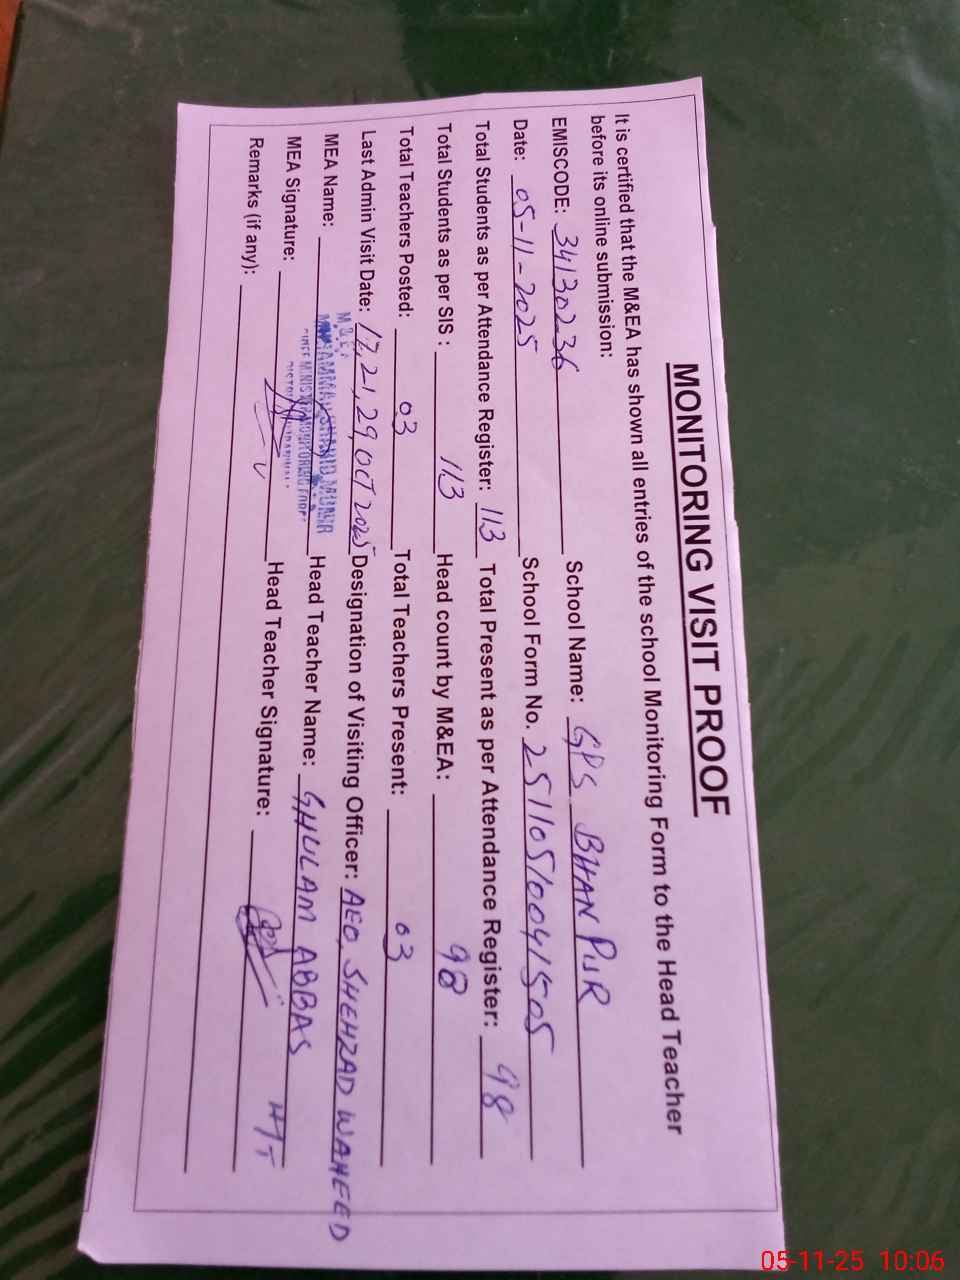 MONITORING VISIT PROOF
It is certified that the M&EA has shown all entries of the school Monitoring Form to the Head Teacher
before its online submission:
EMISCODE: 34130236 School Name: GPS BHAN PUR
Date: 05-11-2025 School Form No. 251105/0041505
Total Students as per Attendance Register: 113 Total Present as per Attendance Register: 98
Total Students as per SIS: 113 Head count by M&EA: 98
Total Teachers Posted: 03 Total Teachers Present: 03
Last Admin Visit Date: 17,21,29,OCT 2025 Designation of Visiting Officer: AEO, SHEHZAD WAHEED
MEA Name: M&EA Head Teacher Name: GHULAM ABBAS
MEA Signature: Head Teacher Signature: HT
Remarks (if any):
05-11-25 10:05